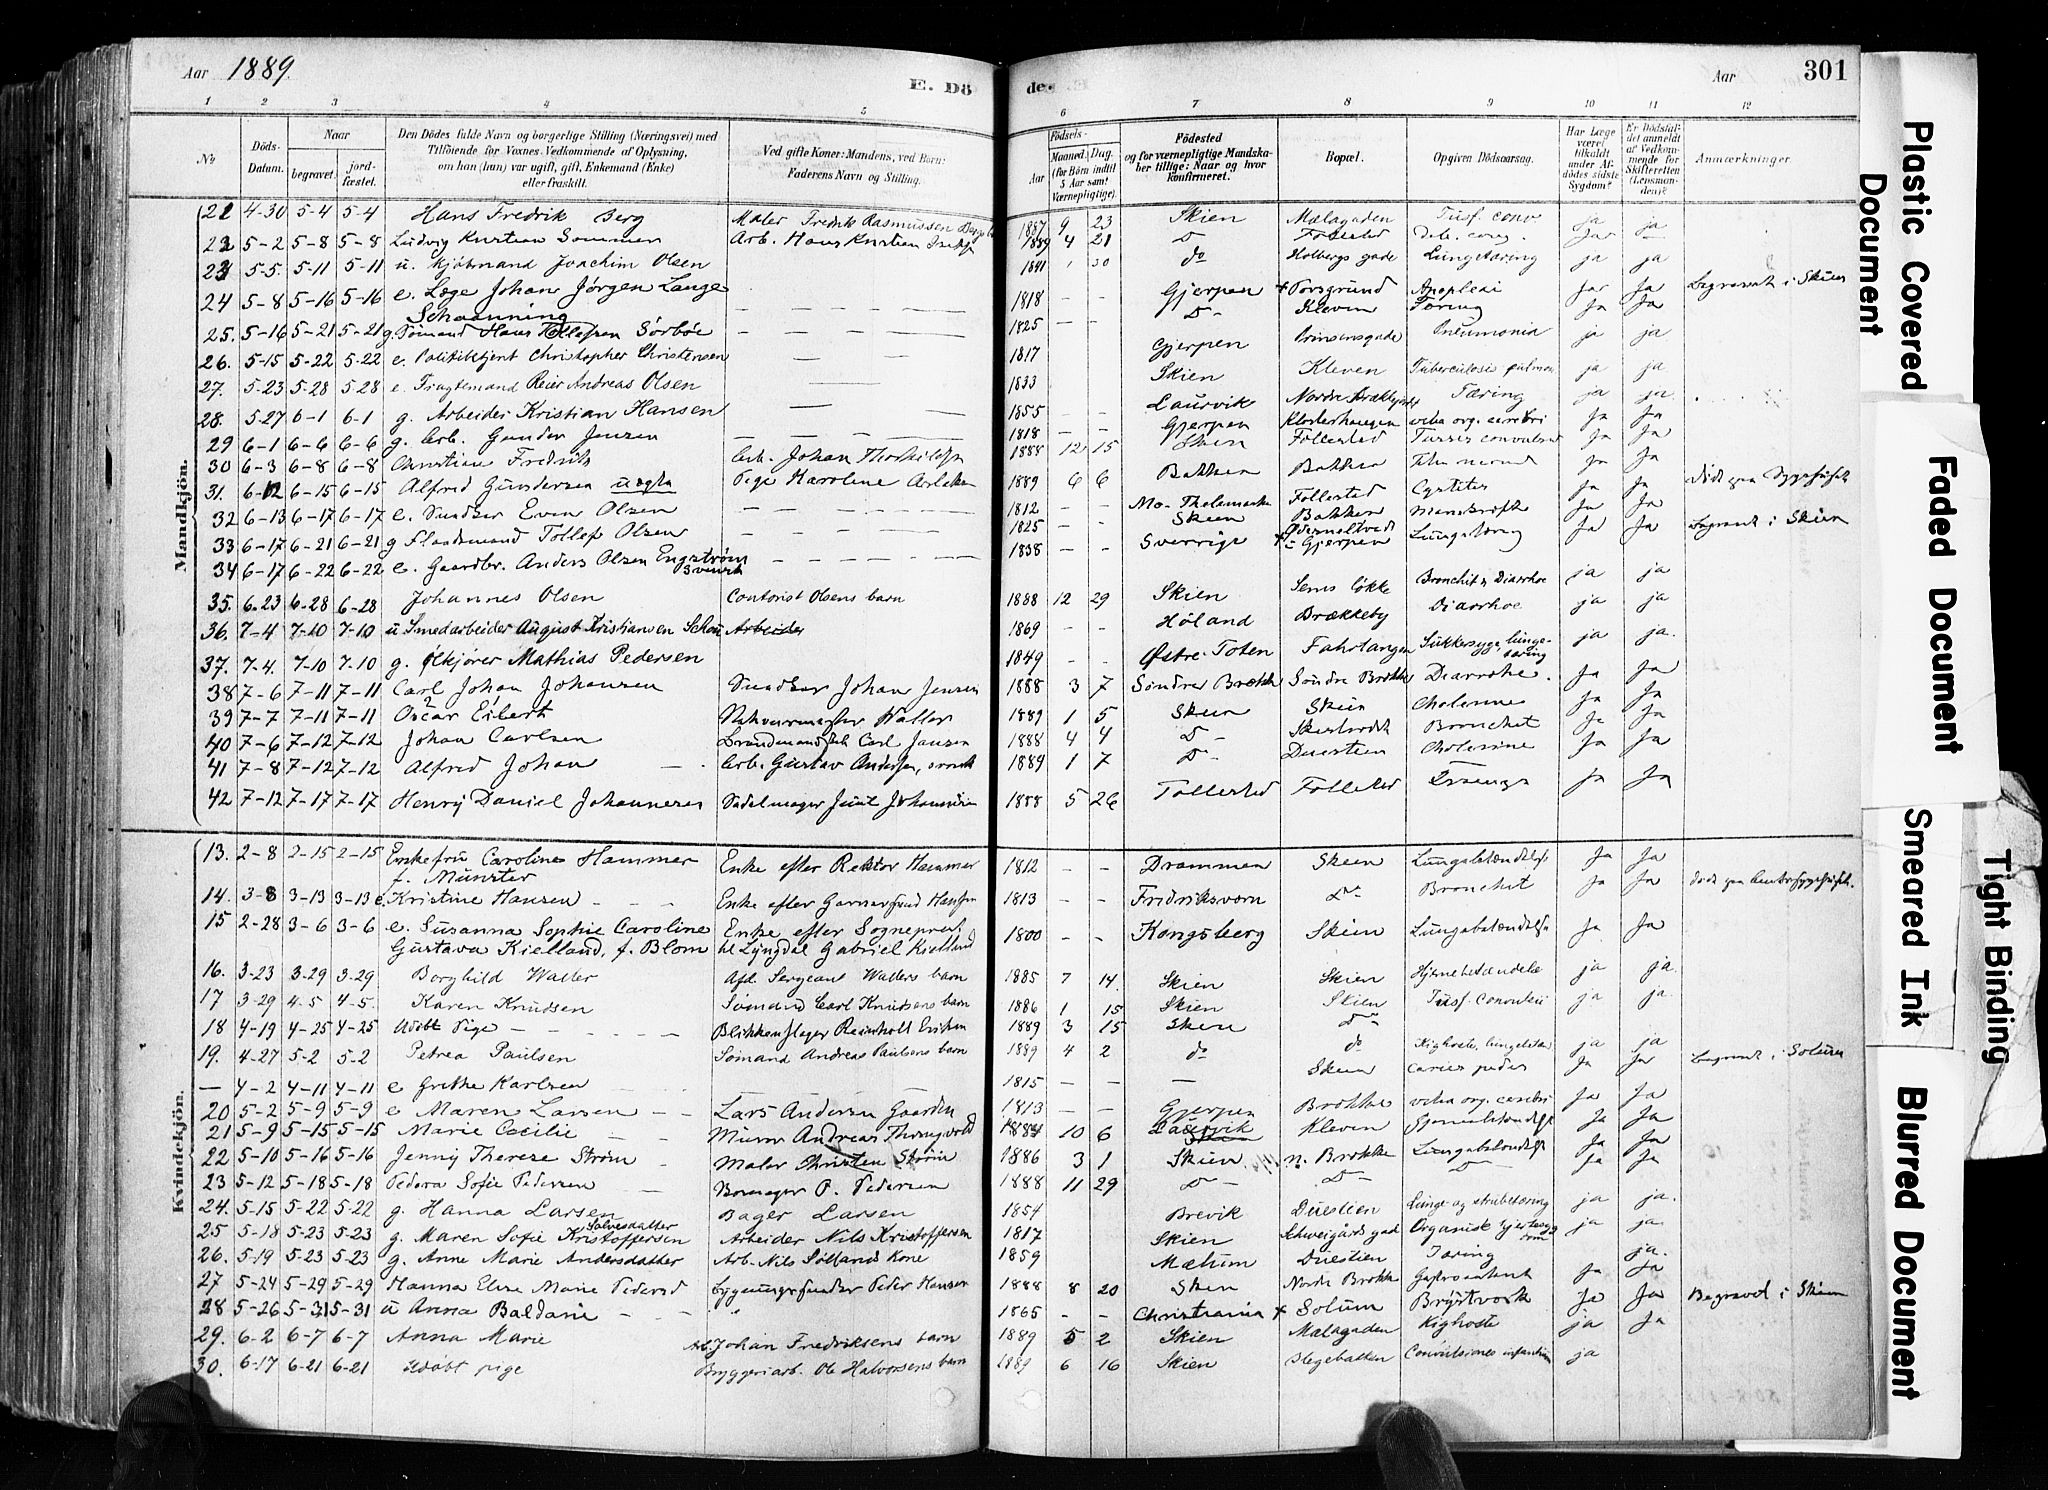 Aar 1889.
E. Dö
de.
Aar
301
1 2 3 4 5 6 7 8 9 10 11 12
No
Döds-Datum.
Naar
begravet.
jord-fæstet.
Den Dödes fulde Navn og borgerlige Stilling (Næringsvei) med
Tilföiende for Voxnes Vedkommende af Oplysning,
om han (hun) var ugift, gift, Enkemand (Enke)
eller fraskilt.
Ved gifte Koner: Mandens, ved Börn:
Faderens Navn og Stilling.
Födsels-
Aar
Maaned. Dag.
(for Börn indtil
5 Aar samt
Værnepligtige).
Födested
og for værnepligtige Mandska-
ber tillige: Naar og hvor
konfirmeret.
Bopæl.
Opgiven Dödsaarsag.
Har Læge
været
tilkaldt
under Af-
dödes sidste
Sygdom?
Er Dödsfal-
det anmeldt
af Vedkom-
mende for
Skifteretten
(Lensman-
den)?
Anmærkninger.
Mandkjön.
21 4-30 5-4 5-4 Hans Fredrik Berg Maler Fredrik Rasmussen 1887 9 23 Skien Mælagaden ja ja
22 5-2 5-8 5-8 Ludvig Kristian Arb. Hans Kristian 1889 4 21 Do Follestad
23 5-5 5-11 5-11 u. Kjöbmand Joachim Olsen 1841 1 30 do Holbergs gade Lungetæring ja ja
24 5-8 5-16 5-16 e. Læge Johan Jörgen Lange Schanning 1818 - - Gjerpen + Porsgrund Apoplexi Ja Begravet i Skien
25. 5-16 5-21 5-21 g. Sömand Hans Tollefsen Sörböe 1825 - - Do Kleven Tæring Ja Ja
26. 5-15 5-22 5-22 e. Politibetjent Christopher Christensen 1817 Gjerpen Prinsensgade Pneumonia ja ja
27. 5-23 5-28 5-28 e. Fragtemand Reier Andreas Olsen 1833 Skien Kleven Tuberculosis pulmon ja ja
28. 5-27 6-1 6-1 g. Arbeider Kristian Hansen 1855 - - Laurvik Nordre Tæring ja ja
29 6-1 6-6 6-6 g. Arb. Gunder Jensen 1818 - - Gjerpen Klosterhaugen vitia org. cerebri Ja Ja
30 6-3 6-8 6-8 Christian Fredrik Arb. Johan 1888 12 15 Skien Follestad Ja Ja
31. 6-12 6-15 6-15 Alfred Gundersen uægte Pige Karoline 1889 6 6 Bakken Bakken Ja Ja
32 6-13 6-17 6-17 e. Even Olsen 1812 - - Mo. Thelemarken Follestad Cystitis Ja Ja Död paa Sygehuset
33 6-17 6-21 6-21 g Tollef Olsen 1825 - - Skien Bakken Ja Ja
34 6-17 6-22 6-22 e. Gaardbr. Anders Olsen Engström Svensk 1838 - - Sverrige + i Gjerpen Lungetæring Ja Ja Begravet i Skien
35. 6-23 6-28 6-28 Johannes Olsen Contorist Olsens barn 1888 12 29 Skien Sems Lökke Bronchit & Diarrhoe ja ja
36. 7-4 7-10 7-10 u Smedarbeider August Kristiansen Schou Arbeider 1869 Höland Brækkeby Diarrhoe ja ja
37. 7-4. 7-10 7-10 g. Ölkjører Mathias Pedersen 1849 - - Östre Toten Fahrlangen Sukkersyge, lungetæring ja ja.
38 7-6 7-11 7-11 Carl Johan Johansen Johan Jensen 1888 3 7 Söndre Brekke Söndre Brekke Diarrohe. Ja Ja
39 7-7 7-11 7-11 Oscar Eilert 1889 1 5 Skien Skien Cholerine Ja Ja
40 7-6 7-12 7-12 Johan Carlsen Brandmand Carl Jansen 1888 4 4 Do Bronchit Ja Ja
41 7-8 7-12 7-12 Alfred Johan Arb. Gustav Anderssen, svensk 1889 1 7 Do Duestien Cholerine Ja Ja
42 7-12 7-17 7-17 Henry Daniel Johannesen Sadelmager Juul Johannesen 1888 5 26 Follestad Follestad Ja Ja
Kvindekjön.
13. 2-8 2-15 2-15 Enkefru Caroline Hammer f. Münster Enke efter Rektor Hammer 1812 - - Drammen Skien Lungebetændelse Ja Ja
14. 3-8 3-13 3-13 e. Kristine Hansen Enke efter Garversvend Hansen 1813 - - Fredriksværn Do Bronchit Ja Ja
15 2-28 3-6 3-6 e. Susanna Sophie Caroline Gustava Kielland, f. Blom Enke efter Sognepræst til Lyngdal Gabriel Kielland 1800 - - Kongsberg Skien Lungebetændelse Ja Ja
16. 3-23 3-29 3-29 Borghild Walter Afd. Sergeant Walters barn 1885 7 14. Skien Skien Hjernebetændelse ja ja.
17 3-29 4-5 4-5. Karen Knudsen Sömand Carl Knudsens barn 1886 1 15 Skien Skien ja ja.
18 4-19 4-25 4-25 Udöbt Pige Blikkenslager Reinholt Eriksen 1889 3 15 Skien Do
19. 4-27 5-2 5-2 Petrea Paulsen Sömand Andreas Paulsens barn 1889 4 2 do do Kighoste, ja ja
- 4-2 4-11 4-11 e Grethe Karlsen 1815 - - - Skien Caries pedis Ja Ja Begravet i Solum
20 5-2 5-9 5-9 e Maren Larsen Lars Andersen Gaarden 1813 - - Gjerpen Brekke vitia org. cerebri Ja Ja
21 5-9 5-15 5-15 Marie Cecilie Murer Andreas Thorvald 1884 10 6 Laurvik Skien Kleven Ja Ja
22 5-10 5-16 5-16 Jenny Therese Ström Maler Christen Ström 1886 3 1 Skien n. Brekke Lungebetændelse Ja Ja
23 5-12 5-18 5-18 Pedera Sofie Pedersen P. Pedersen 1888 11 29 Do Do Do Ja Ja
24. 5-15 5-22 5-22 g. Hanna Larsen Bager Larsen 1854 Brevik Duestien Lunge og strubetæring ja ja.
25 5-18 5-23 5-23 g. Maren Sofie Kristoffersen Solvesdatter Arbeider Nils Kristoffersen 1817 Skien Schweigårds gad Organisk hjertesygdom ja ja.
26. 5-19 5-23 5-23 g. Anne Marie Andersdatter Arb. Nils Sölland Kone 1859 Mælum Duestien Tæring ja.
27 5-24 5-29 5-29 Hanna Elise Marie Pedersd Peder Hansen 1888 8 20 Skien Nordre Brekke Ja Ja
28 5-26 5-31 5-31 u Anna Baldarie 1865 - - Christiania + Solum Brystværk Ja Ja Begravet i Skien
29. 6-2 6-7 6-7 Anna Marie Arb. Johan Fredriksens barn 1889 5 2 Skien Mælagaden Kighoste ja Ja
30. 6-17 6-21 6-21 Udöbt pige Bryggeriarb. Ole Halvorsens barn 1889 6 16 Skien Slegebakken Convulsiones infantium ja
Plastic Covered Document
Faded Document
Smeared Ink
Tight Binding
Blurred Document